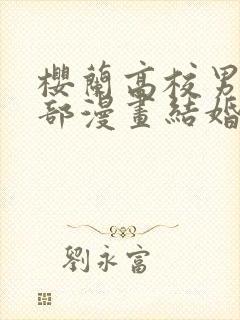 櫻蘭高校男
部漫畫結婚
劉永富